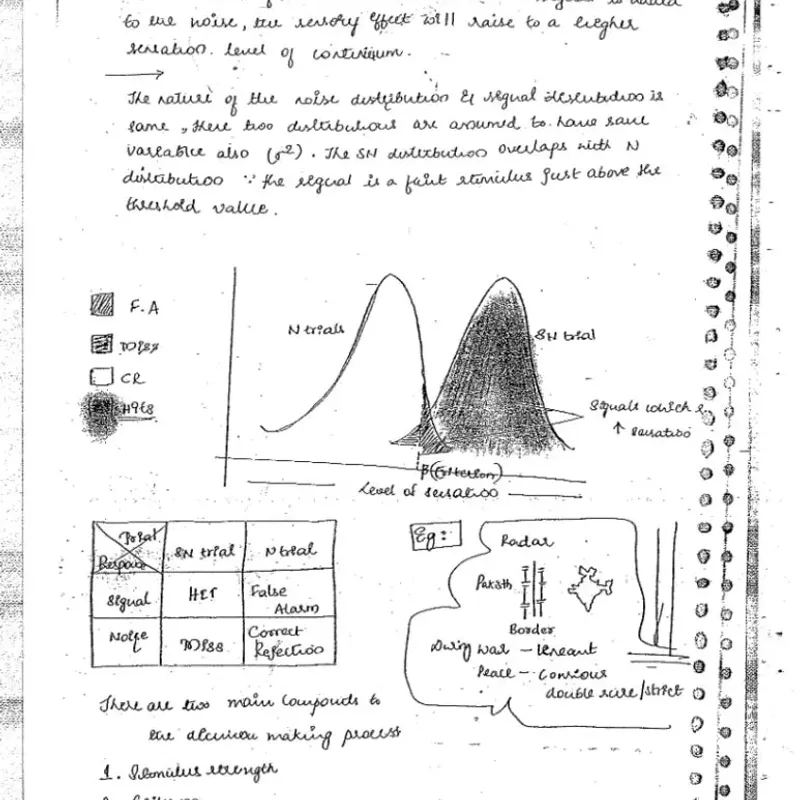 to the noise, the sensory effect will raise to a higher
sensation level of continuum.
The nature of the noise distribution & signal distribution is
same, these two distributions are assumed to have same
variance also (σ²). The SN distribution overlaps with N
distribution ∵ the signal is a faint stimulus just above the
threshold value.
F.A
Miss
CR
Hits
N trials
SN trial
Signals which
↑ sensation
β (Criterion)
Level of sensation
Trial
Response
SN trial
N trial
Signal
HIT
False
Alarm
Noise
Miss
Correct
Rejection
Eg:
Radar
Border
During war - lenient
Peace -
double sure/strict
There are two main compounds to
the decision making process
1. Stimulus strength